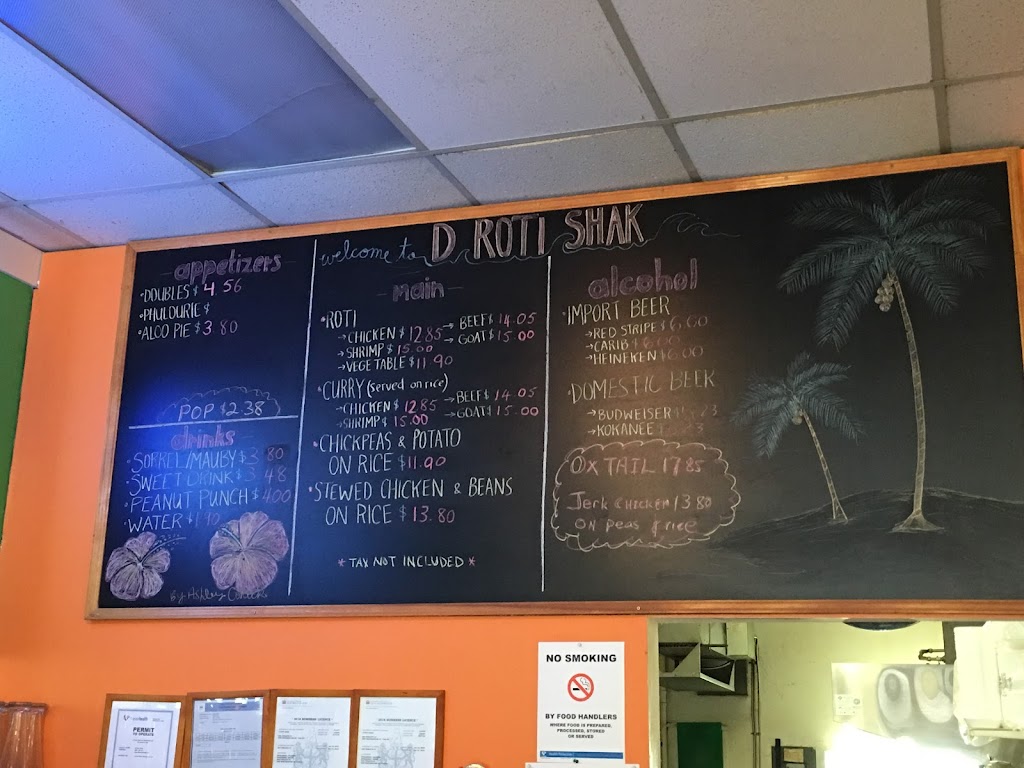 welcome to D ROTI SHAK
appetizers
·DOUBLES $ 4.56
·PHULOURIE $
·ALOO PIE $ 3.80
POP $2.38
drinks
·SORREL/MAUBY $3.80
·SWEET DRINK $3.48
·PEANUT PUNCH $4.00
·WATER $1.90
By Ashley
main
·ROTI
→CHICKEN $ 12.85 → BEEF $ 14.05
→SHRIMP $ 15.00 → GOAT $ 15.00
→VEGETABLE $11.90
·CURRY (served on rice)
→CHICKEN $ 12.85 → BEEF $ 14.05
→SHRIMP $ 15.00 → GOAT $ 15.00
·CHICKPEAS & POTATO
ON RICE $11.90
·STEWED CHICKEN & BEANS
ON RICE $ 13.80
*TAX NOT INCLUDED*
alcohol
·IMPORT BEER
→RED STRIPE $6.00
→CARIB $6.00
→HEINEKEN $6.00
·DOMESTIC BEER
→BUDWEISER
→KOKANEE
OXTAIL 17.85
Jerk CHICKEN 13.80
ON Peas & rice
PERMIT
TO OPERATE
NO SMOKING
BY FOOD HANDLERS
WHERE FOOD IS PREPARED,
PROCESSED, STORED
OR SERVED